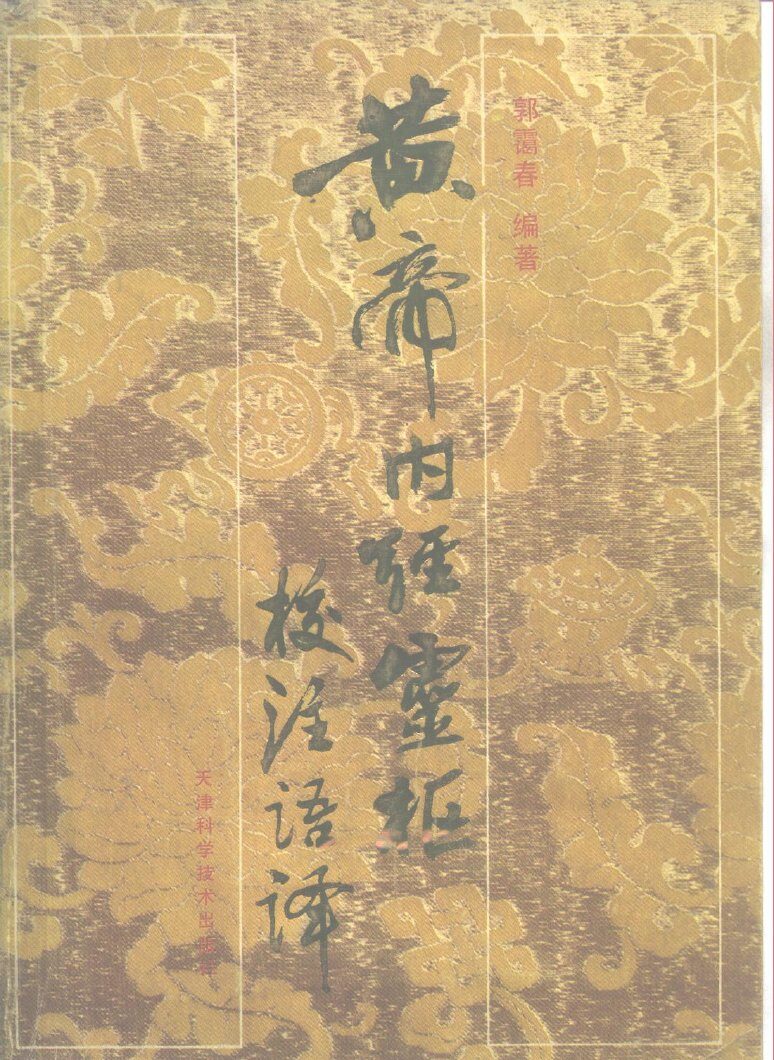 郭霭春 编著
黄帝内经靈枢
校注语译
天津科学技术出版社